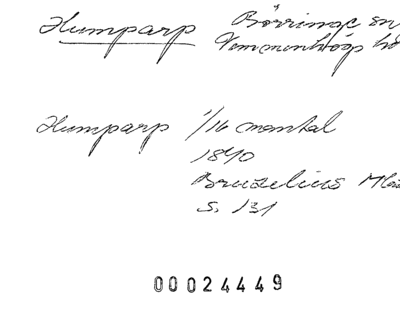 Humparp Börringe sn
Vemmenhögs
Humparp 1/16 mantal
1840
Bruzelius
s. 131
00024449